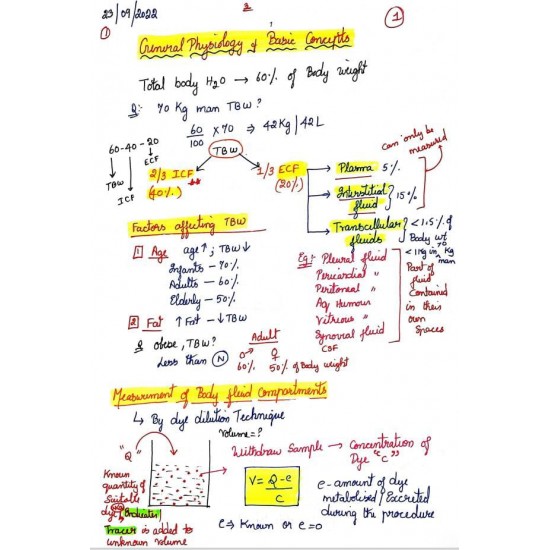 23/09/2022
①
General Physiology & Basic Concepts
Total body H2O → 60% of Body weight
Q: 70 Kg man TBW?
60/100 x 70 ⇒ 42Kg/42L
TBW
60-40-20
TBW ICF ECF
2/3 ICF
(40%)
1/3 ECF
(20%)
Can only be measured
→ Plasma 5%
→ Interstitial fluid } 15%
→ Transcellular fluids { <1.5% of Body wt
<1Kg in 70 Kg man
Part of fluid Contained in their own Spaces
Eg:- Pleural fluid
Pericardial "
Peritoneal "
Aq Humour
Vitreous "
Synovial fluid
CSF
Factors affecting TBW
1 Age age↑; TBW↓
Infants - 70%
Adults - 60%
Elderly - 50%
2 Fat ↑Fat - ↓TBW
Q obese, TBW?
Less than N
Adult
♂ ♀
60% 50% of Body weight
Measurement of Body fluid Compartments
↳ By dye dilution Technique
Volume=?
"Q"
Known quantity of Suitable dye/Indicator/
Tracer is added to unknown volume
Withdraw Sample → Concentration of Dye "C"
V = Q-e/C
e-amount of dye
metabolised/Excreted
during the procedure
e⇒ Known or e=0